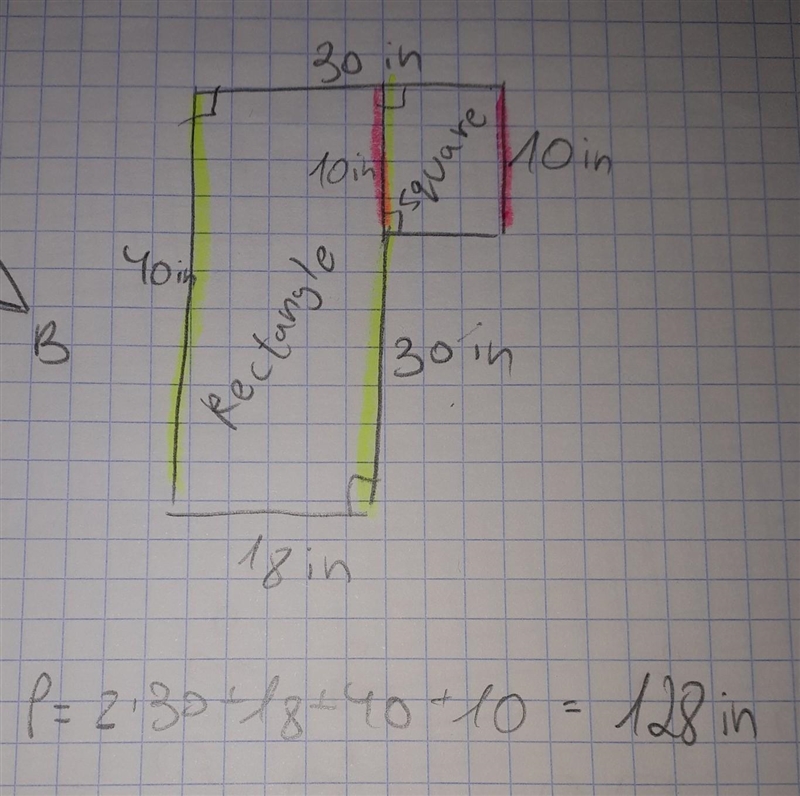 30 in
10in
square
10 in
40in
Rectangle
B
30 in
18 in
P = 2·30+18+40+10 = 128 in